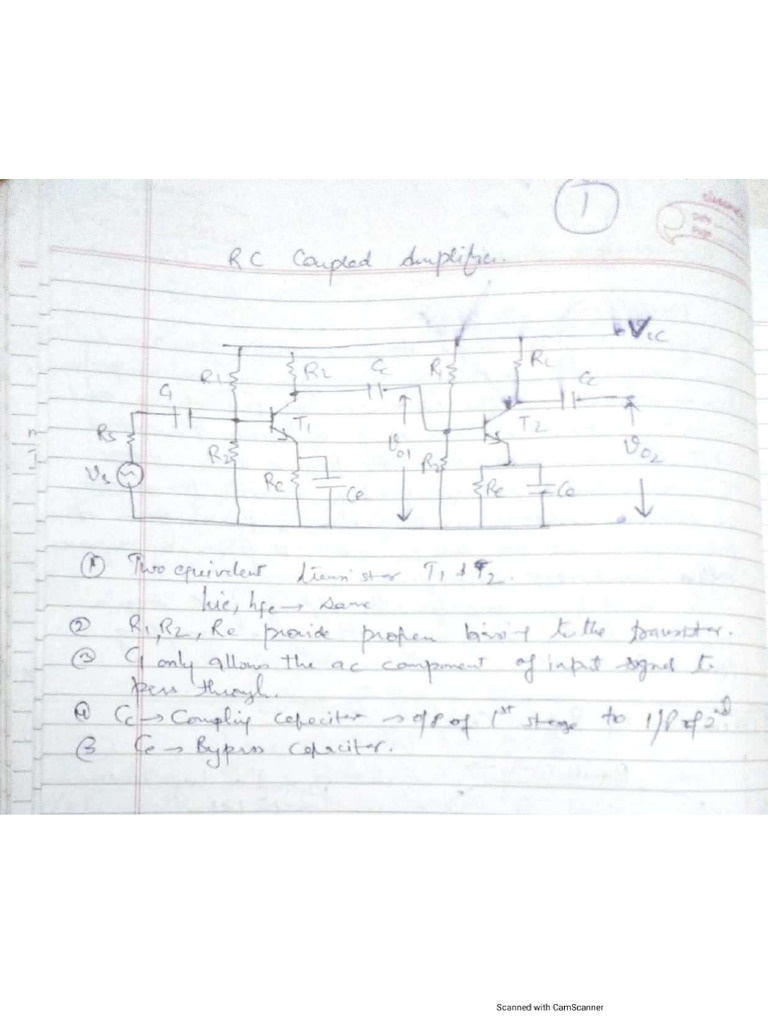 1
RC Coupled Amplifier.
Vcc
R1
RL
Cc
R1
RL
Cc
C1
T1
T2
Rs
R2
Vo1
R2
Vo2
Vs
Re
Ce
Re
Ce
① Two equivalent transistor T1 & T2.
hie, hfe → same
② R1, R2, Re provide proper biasing to the transistor.
③ C1 only allows the ac component of input signal to
pass through.
④ Cc → Coupling capacitor → o/p of 1st stage to I/P of 2nd
⑤ Ce → Bypass capacitor.
Scanned with CamScanner